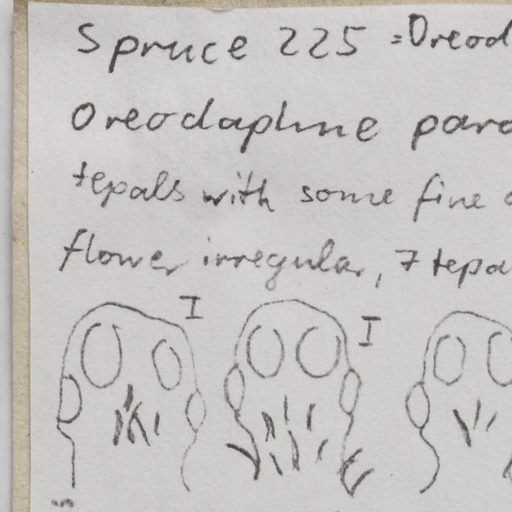 Spruce 225 = Oreod
Oreodaphne para
tepals with some fine
flower irregular, 7 tepa
I I